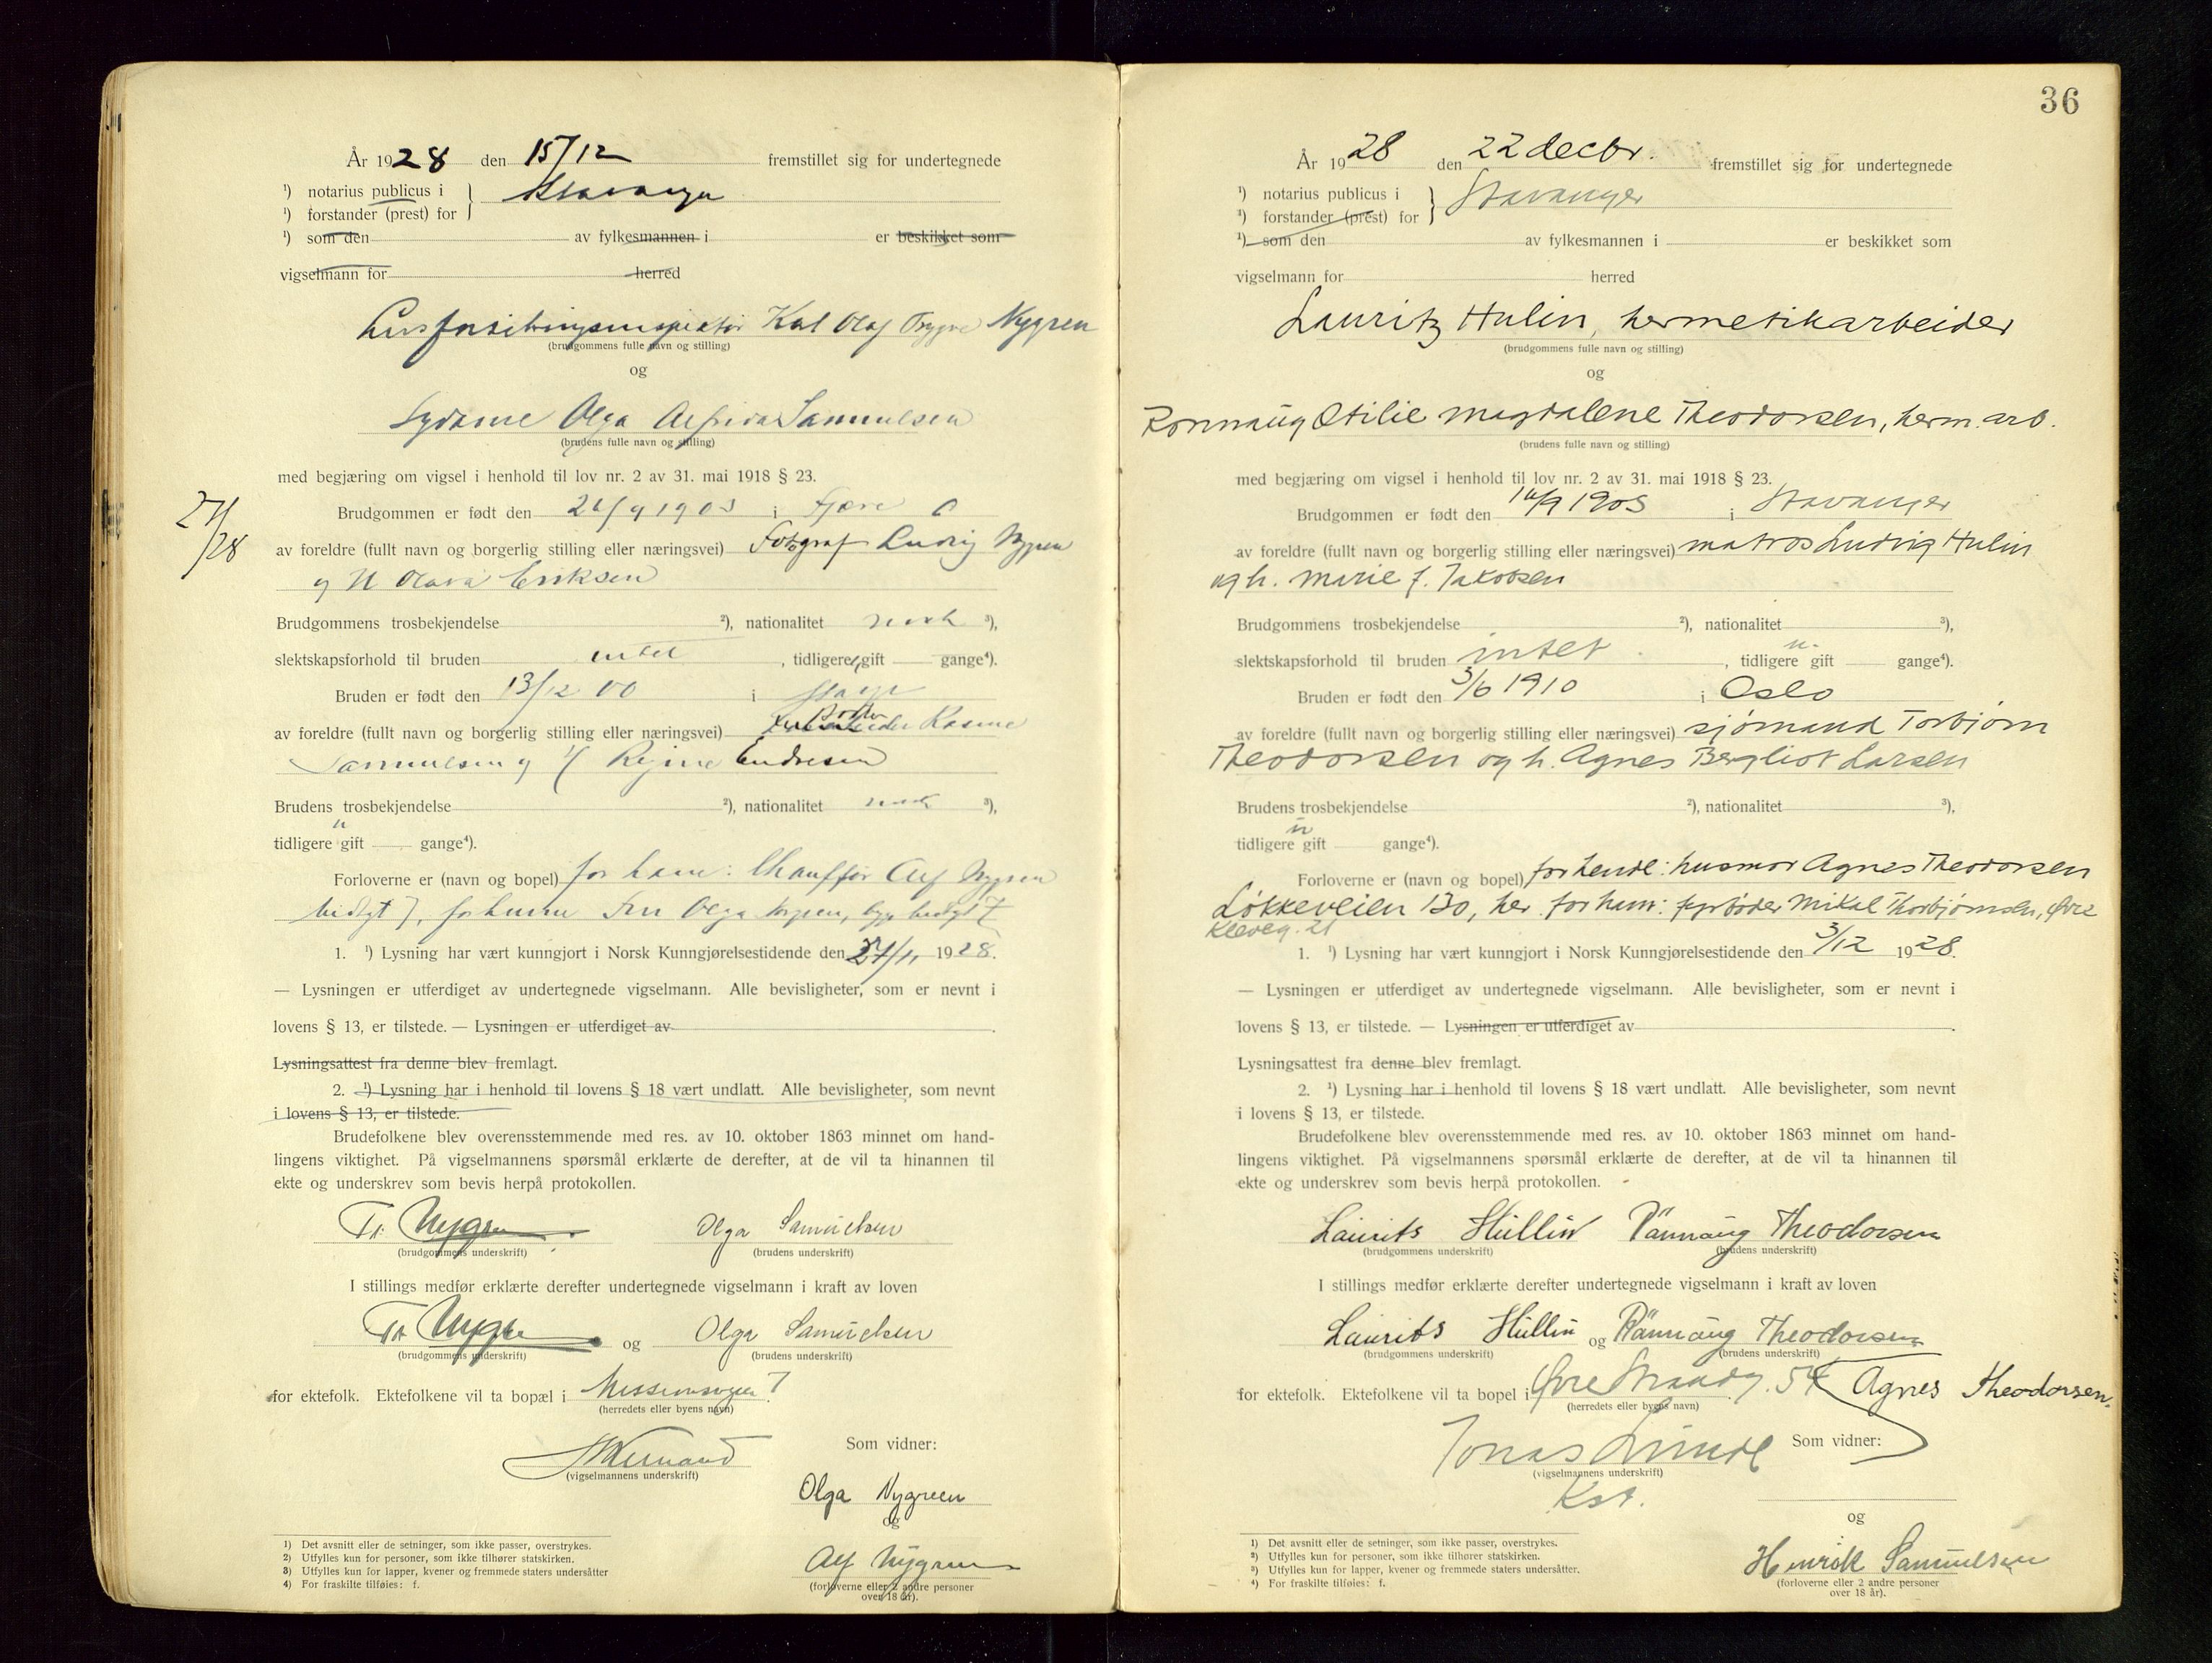 År 1928 den 15/12 fremstillet sig for undertegnede
¹) notarius publicus i } Stavanger
¹) forstander (prest) for
¹) som den av fylkesmannen i er beskikket som
vigselmann for herred
Karl Olaf Trygve Nygren
(brudgommens fulle navn og stilling)
og
Olga Samuelsen
(brudens fulle navn og stilling)
med begjæring om vigsel i henhold til lov nr. 2 av 31. mai 1918 § 23.
27/11
/28
Brudgommen er født den /9 1903 i
av foreldre (fullt navn og borgerlig stilling eller næringsvei) Fotograf Ludvig Nygren
og H Olava Eriksen
Brudgommens trosbekjendelse ²), nationalitet norsk ³),
slektskapsforhold til bruden intet , tidligere gift gange⁴).
Bruden er født den 13/12 00 i
av foreldre (fullt navn og borgerlig stilling eller næringsvei) Rasmus
Samuelsen og H Regine Endresen
Brudens trosbekjendelse ²), nationalitet norsk ³),
u
tidligere gift gange⁴).
Forloverne er (navn og bopel) for ham: Chauffør Alf Nygren
for henne Fru Olga Nygren,
1. ¹) Lysning har vært kunngjort i Norsk Kunngjørelsestidende den 27/11 1928.
— Lysningen er utferdiget av undertegnede vigselmann. Alle bevisligheter, som er nevnt i
lovens § 13, er tilstede. — Lysningen er utferdiget av .
Lysningsattest fra denne blev fremlagt.
2. ¹) Lysning har i henhold til lovens § 18 vært undlatt. Alle bevisligheter, som nevnt
i lovens § 13, er tilstede.
Brudefolkene blev overensstemmende med res. av 10. oktober 1863 minnet om hand-
lingens viktighet. På vigselmannens spørsmål erklærte de derefter, at de vil ta hinannen til
ekte og underskrev som bevis herpå protokollen.
Tr. Nygren Olga Samuelsen
(brudgommens underskrift) (brudens underskrift)
I stillings medfør erklærte derefter undertegnede vigselmann i kraft av loven
Tr. Nygren og Olga Samuelsen
(brudgommens underskrift) (brudens underskrift)
for ektefolk. Ektefolkene vil ta bopæl i Missionsveien 7
(herredets eller byens navn)
Som vidner:
(vigselmannens underskrift)
Olga Nygreen
og
Alf Nygreen
(forloverne eller 2 andre personer
over 18 år).
1) Det avsnitt eller de setninger, som ikke passer, overstrykes.
2) Utfylles kun for personer, som ikke tilhører statskirken.
3) Utfylles kun for lapper, kvener og fremmede staters undersåtter
4) For fraskilte tilføies: f.
36
År 1928 den 22 decbr. fremstillet sig for undertegnede
¹) notarius publicus i } Stavanger
¹) forstander (prest) for
¹) som den av fylkesmannen i er beskikket som
vigselmann for herred
Lauritz Hulin, hermetikarbeider
(brudgommens fulle navn og stilling)
og
Ronnaug Otilie Magdalene Theodorsen, herm. arb.
(brudens fulle navn og stilling)
med begjæring om vigsel i henhold til lov nr. 2 av 31. mai 1918 § 23.
Brudgommen er født den /9 1903 i Stavanger
av foreldre (fullt navn og borgerlig stilling eller næringsvei) matros Ludvig Hulin
og h. Marie f. Jakobsen
Brudgommens trosbekjendelse ²), nationalitet ³),
u.
slektskapsforhold til bruden intet . , tidligere gift gange⁴).
Bruden er født den 3/6 1910 i Oslo
av foreldre (fullt navn og borgerlig stilling eller næringsvei) sjømand Torbjørn
Theodorsen og h. Agnes Bergliot Larsen
Brudens trosbekjendelse ²), nationalitet ³),
u
tidligere gift gange⁴).
Forloverne er (navn og bopel) for hende: husmor Agnes Theodorsen
Løkkeveien 130, her for ham: fyrbøder Mikal Thorbjørnsen, Øvre
Kleveg. 21
1. ¹) Lysning har vært kunngjort i Norsk Kunngjørelsestidende den 3/12 1928.
— Lysningen er utferdiget av undertegnede vigselmann. Alle bevisligheter, som er nevnt i
lovens § 13, er tilstede. — Lysningen er utferdiget av .
Lysningsattest fra denne blev fremlagt.
2. ¹) Lysning har i henhold til lovens § 18 vært undlatt. Alle bevisligheter, som nevnt
i lovens § 13, er tilstede.
Brudefolkene blev overensstemmende med res. av 10. oktober 1863 minnet om hand-
lingens viktighet. På vigselmannens spørsmål erklærte de derefter, at de vil ta hinannen til
ekte og underskrev som bevis herpå protokollen.
Laurits Hullin Rannaug Theodorsen
(brudgommens underskrift) (brudens underskrift)
I stillings medfør erklærte derefter undertegnede vigselmann i kraft av loven
Laurits Hullin og Rannaug Theodorsen
(brudgommens underskrift) (brudens underskrift)
for ektefolk. Ektefolkene vil ta bopel i Øvre Strandg. 54 Agnes Theodorsen.
(herredets eller byens navn)
Jonas Lunde Som vidner:
(vigselmannens underskrift)
Kst.
og
Henrik Samuelsen
(forloverne eller 2 andre personer
over 18 år).
1) Det avsnitt eller de setninger, som ikke passer, overstrykes.
2) Utfylles kun for personer, som ikke tilhører statskirken.
3) Utfylles kun for lapper, kvener og fremmede staters undersåtter.
4) For fraskilte tilføies: f.